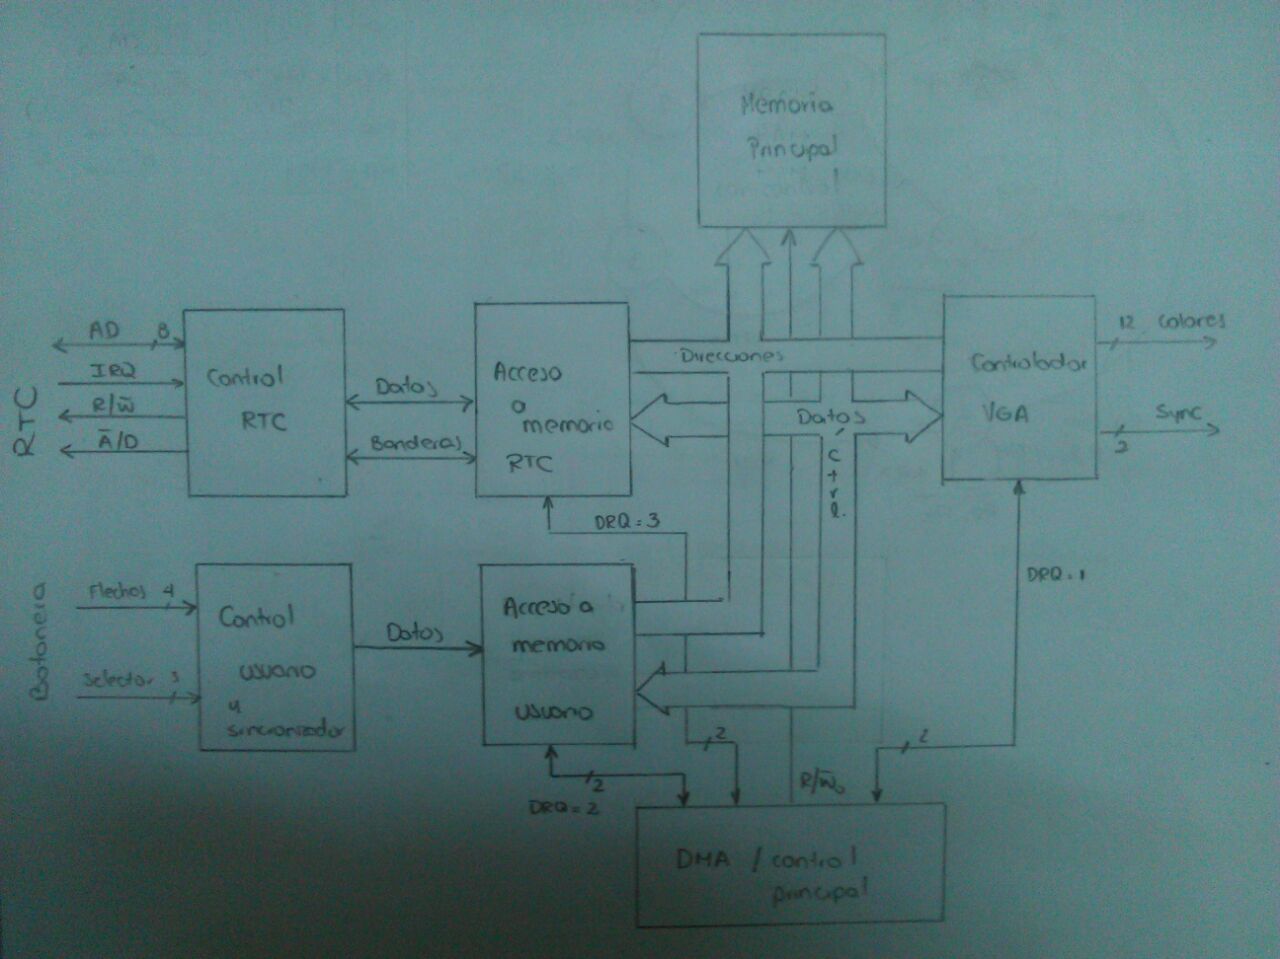 Memoria
Principal
RTC
AD 8
IRQ
R/W̅
A̅/D
Control
RTC
Datos
Banderas
Acceso
a
memoria
RTC
Direcciones
Datos
Ctrl.
Controlador
VGA
12 Colores
Sync
2
DRQ=3
DRQ=1
Botonera
Flechas 4
Selector 3
Control
usuario
y
sincronizador
Datos
Acceso a
memoria
usuario
2
DRQ=2
2
R/W̅
2
DMA / control
principal